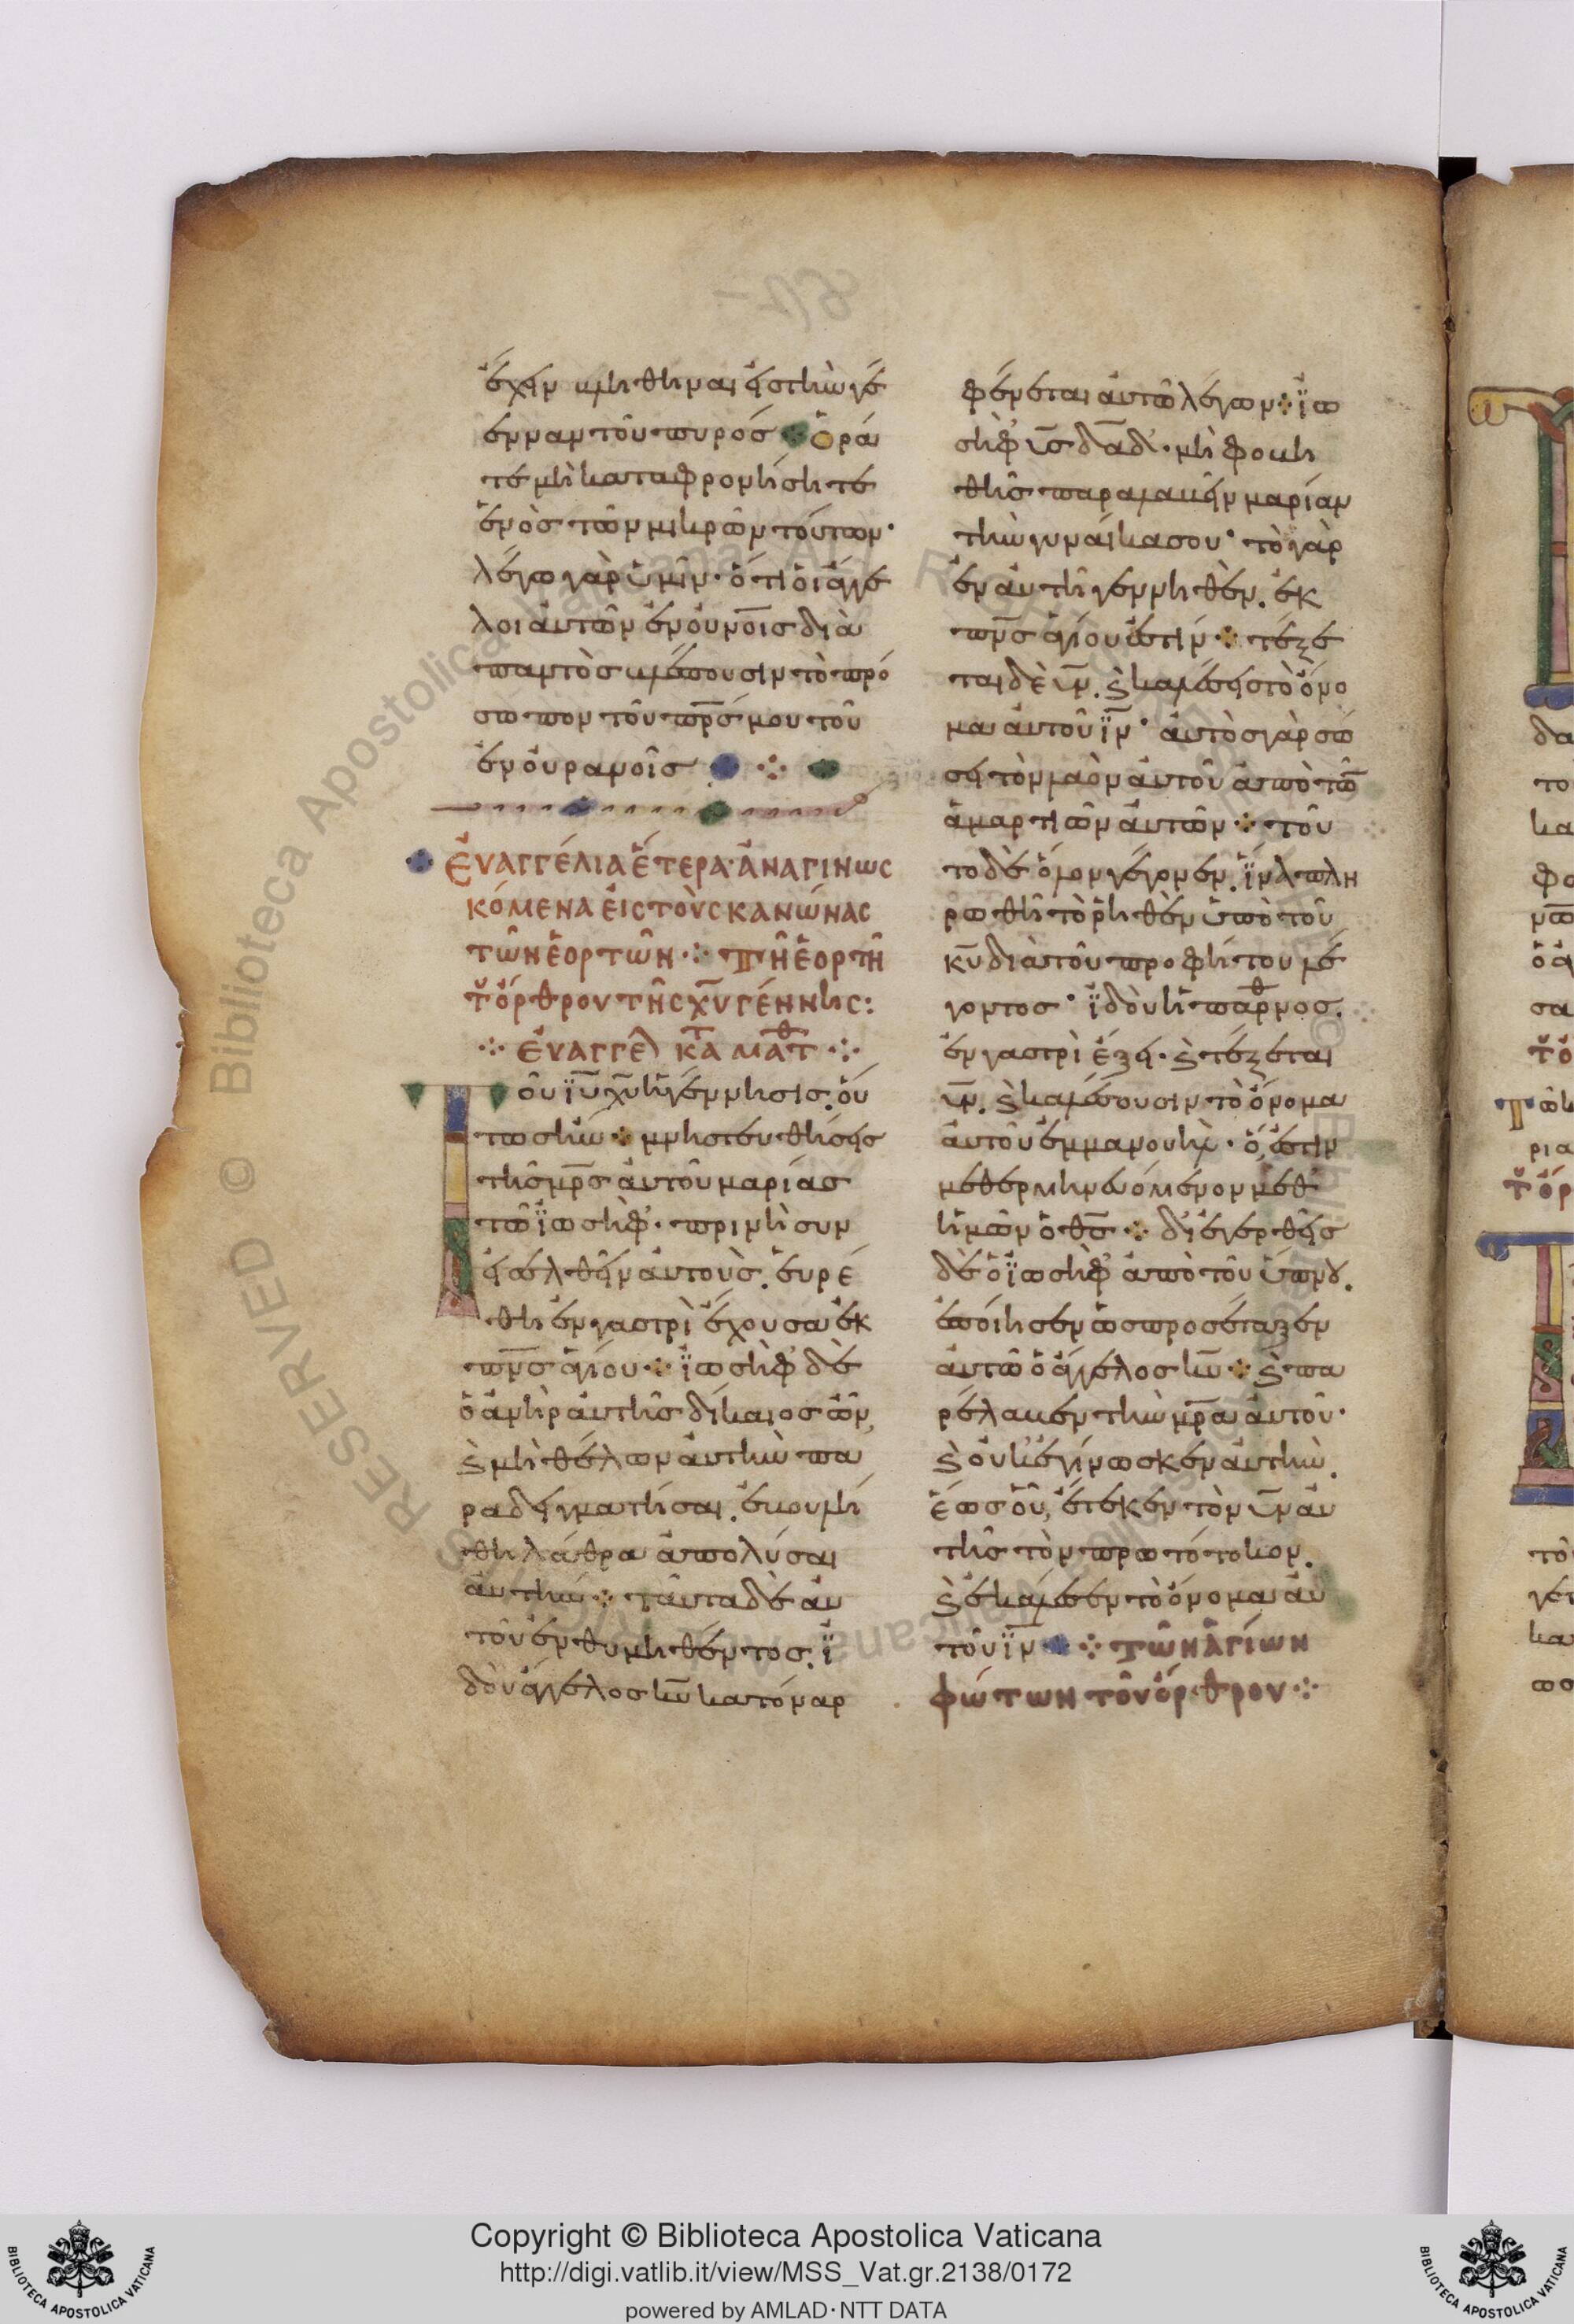 ἔχειν βληθῆναι εἰς τὴν γέ
ενναν τοῦ πυρός ὁρᾶ
τε μὴ καταφρονήσητε
ἑνὸς τῶν μικρῶν τούτων·
λέγω γὰρ ὑμῖν· ὅτι οἱ ἄγγε
λοι αὐτῶν ἐν οὐνοῖς διὰ
παντὸς βλέπουσιν τὸ πρό
σωπον τοῦ πρς μου τοῦ
ἐν οὐρανοῖς ⁘
ΕΥΑΓΓΕΛΙΑ ΕΤΕΡΑ· ΑΝΑΓΙΝΩC
ΚΟΜΕΝΑ ΕΙC ΤΟΥC ΚΑΝΩΝΑC
ΤΩΝ ΕΟΡΤΩΝ ⁘ ΤΗ ΕΟΡΤΗ
Τ ΟΡΘΡΟΥ ΤΗC ΧΥ ΓΕΝΝΗC:
⁘ ΕΥΑΓΓΕΛ ΚΑΤ ΜΑΤΘ ⁘
Τοῦ ἰῦ χῦ ἡ γέννησις. οὕ
τως ἦν ⁘ μνηστευθείσης
τῆς μρς αὐτοῦ μαρίας
τῶ ἰωσήφ· πρινὴ συν
ελθεῖν αὐτοὺς. εὑρέ
θη ἐν γαστρὶ ἔχουσα ἐκ
πνς ἁγίου ⁘ ἰωσὴφ δὲ
ὁ ἀνὴρ αὐτῆς δίκαιος ὢν,
ϗ μὴ θέλων αὐτὴν πα
ραδειγματῆσαι. ἐβουλή
θη λάθρα ἀπολῦσαι
αὐτήν ⁘ ταῦτα δὲ αὐ
τοῦ ἐνθυμηθέντος. ἰ
δοὺ ἄγγελος κῦ κατόναρ
φένεται αὐτῶ λέγων ⁘ ἰω
σὴφ υς δαδ· μὴ φοβη
θῆς παραλαβεῖν μαριὰμ
τὴν γυναῖκα σου· τὸ γὰρ
ἐν αὐτῆ γεννηθὲν. ἐκ
πνς ἁγίου ἐστίν ⁘ τέξε
ται δὲ υν. ϗ καλέσεις τὸ ὄνο
μα αὐτοῦ ἰν· αὐτὸς γὰρ σώ
σει τὸν λαὸν αὐτοῦ ἀπὸ τῶ
ἁμαρτιῶν αὐτῶν ⁘ τοῦ
το δὲ ὅλον γέγονεν. ἵνα πλη
ρωθῆ τὸ ῥηθὲν ὑπὸ τοῦ
κυ διὰ τοῦ προφήτου λέ
γοντος· ἰδοὺ ἡ παρθνος.
ἐν γαστρὶ ἕξει. ϗ τέξεται
υν. ϗ καλέσουσιν τὸ ὄνομα
αὐτοῦ ἐμμανουήλ· ὅ ἐστιν
μεθερμηνευόμενον μεθ'
ἡμῶν ὁ θς ⁘ διεγερθεὶς
δὲ ὁ ἰωσὴφ ἀπὸ τοῦ ὕπνου.
ἐποίησεν ὡς προσέταξεν
αὐτῶ ὁ ἄγγελος κυ ⁘ ϗ πα
ρέλαβεν τὴν μρα αὐτοῦ·
ϗ οὐκ ἐγίνωσκεν αὐτὴν.
ἕως οὗ, ἔτεκεν τὸν υν αὐ
τῆς τὸν πρωτότοκον.
ϗ ἐκάλεσεν τὸ ὄνομα αὐ
τοῦ ἰν ⁘ ΤΩΝ ΑΓΙΩΝ
ΦΩΤΩΝ ΤΟΥ ΟΡΘΡΟΥ ⁘
Copyright © Biblioteca Apostolica Vaticana
http://digi.vatlib.it/view/MSS_Vat.gr.2138/0172
powered by AMLAD·NTT DATA
BIBLIOTECA APOSTOLICA VATICANA
BIBLIOTECA APOSTOLICA VATICANA